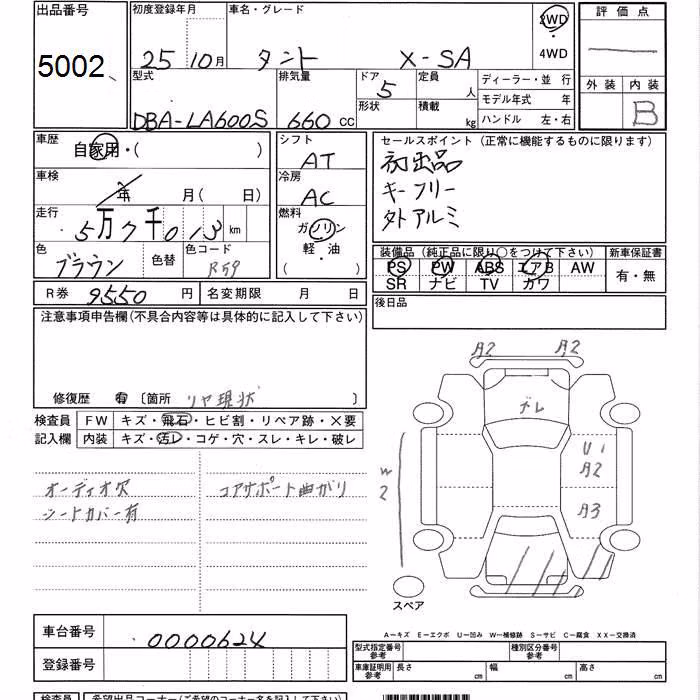 出品番号 初度登録年月 車名・グレード 2WD 評価点
5002 25 10月 タント X-SA ・ 4WD
外装 内装
型式 排気量 ドア 5 定員 人 ディーラー・並行
モデル年式 年 B
DBA-LA600S 660 cc 形状 積載 kg ハンドル 左・右
車歴 自家用・( ) シフト AT セールスポイント (正常に機能するものに限ります)
初出品
車検 年 月( 日) 冷房 AC キーフリー
外アルミ
走行 5万7千013km 燃料 ガソリン
軽・油
( )
色 ブラウン 色替 色コード R59
装備品 (純正品に限り○をつけて下さい) 新車保証書
PS PW ABS エアB AW 有・無
SR ナビ TV カワ
R券 9550円 名変期限 月 日 後日品
注意事項申告欄(不具合内容等は具体的に記入して下さい)
修復歴 有 〔箇所 リヤ現状
検査員 FW キズ・飛石・ヒビ割・リペア跡・×要
記入欄 内装 キズ・汚レ・コゲ・穴・スレ・キレ・破レ
オーディオ欠 コアサポート曲がり
シートカバー有
A2 A2
ズレ
U1
A2
W2
A3
スペア
車台番号 0000624
登録番号
A…キズ E…エクボ U…凹み W…補修跡 S…サビ C…腐食 XX…交換済
型式指定番号 参考 種別区分番号 参考
車庫証明用 参考 長さ cm 幅 cm 高さ cm
検査員 希望出品コーナー(ご希望のコーナー名を記入下さい)